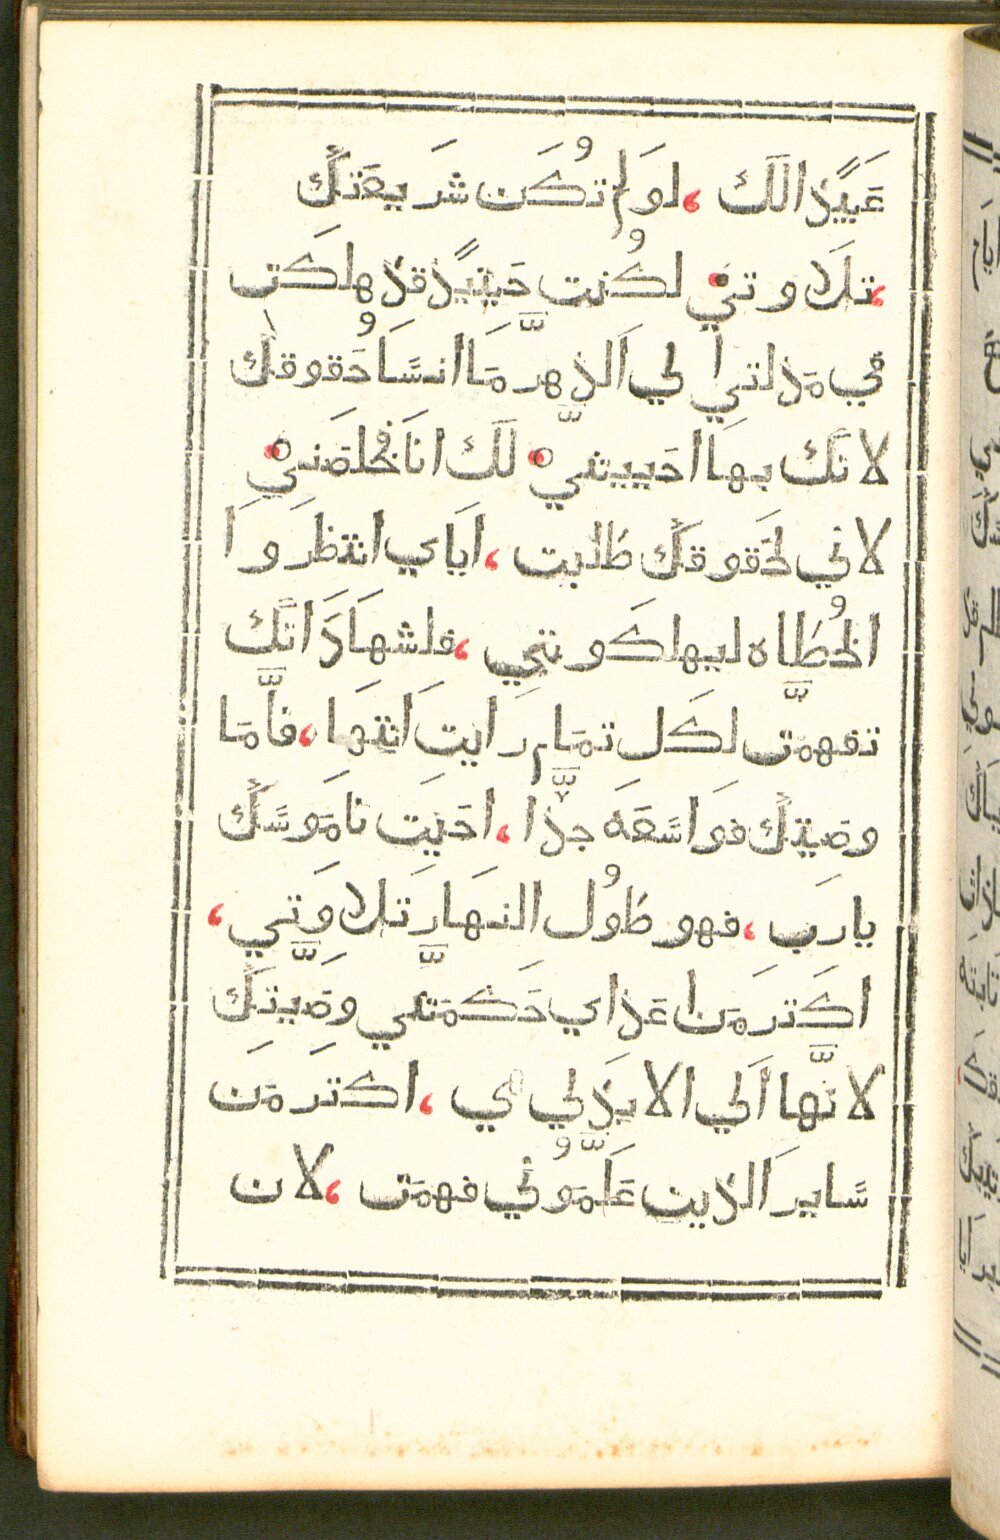 عَبيًدا لَك ، لوَ لم تُكَن شَريعَتكً
، تلاَوتيْ لكُنت حَينيًد قد هلكَت
في مَدلتي اَلي اَلدَّهر مَا انسًا حُقوقكَ
لانَك بهَا احَييتنيْ لَك انَا فخُلصَنيْ
لاني لحَقوقكً طلبت ، ايَاي انتظَروا
الخُطَّاه ليهلكَونني ، فلشهَادَاتكً
تفهمَت لكَل تمَام رَايت اَنتهَا ، فاَّمَا
وصَيتكً فوَاسَعَه جدَّا ، احَببَت نامَوسًكً
يارَب ، فهو طوُل النهَار تلاوَتي ،
اكتَر مَن اعَداي حَكمَتني وصَيتكً
لانَّها اَلي الابَد لي هي ، اكتَر مَن
سًاير اَلدين عَلَّموُني فهمَت ، لان